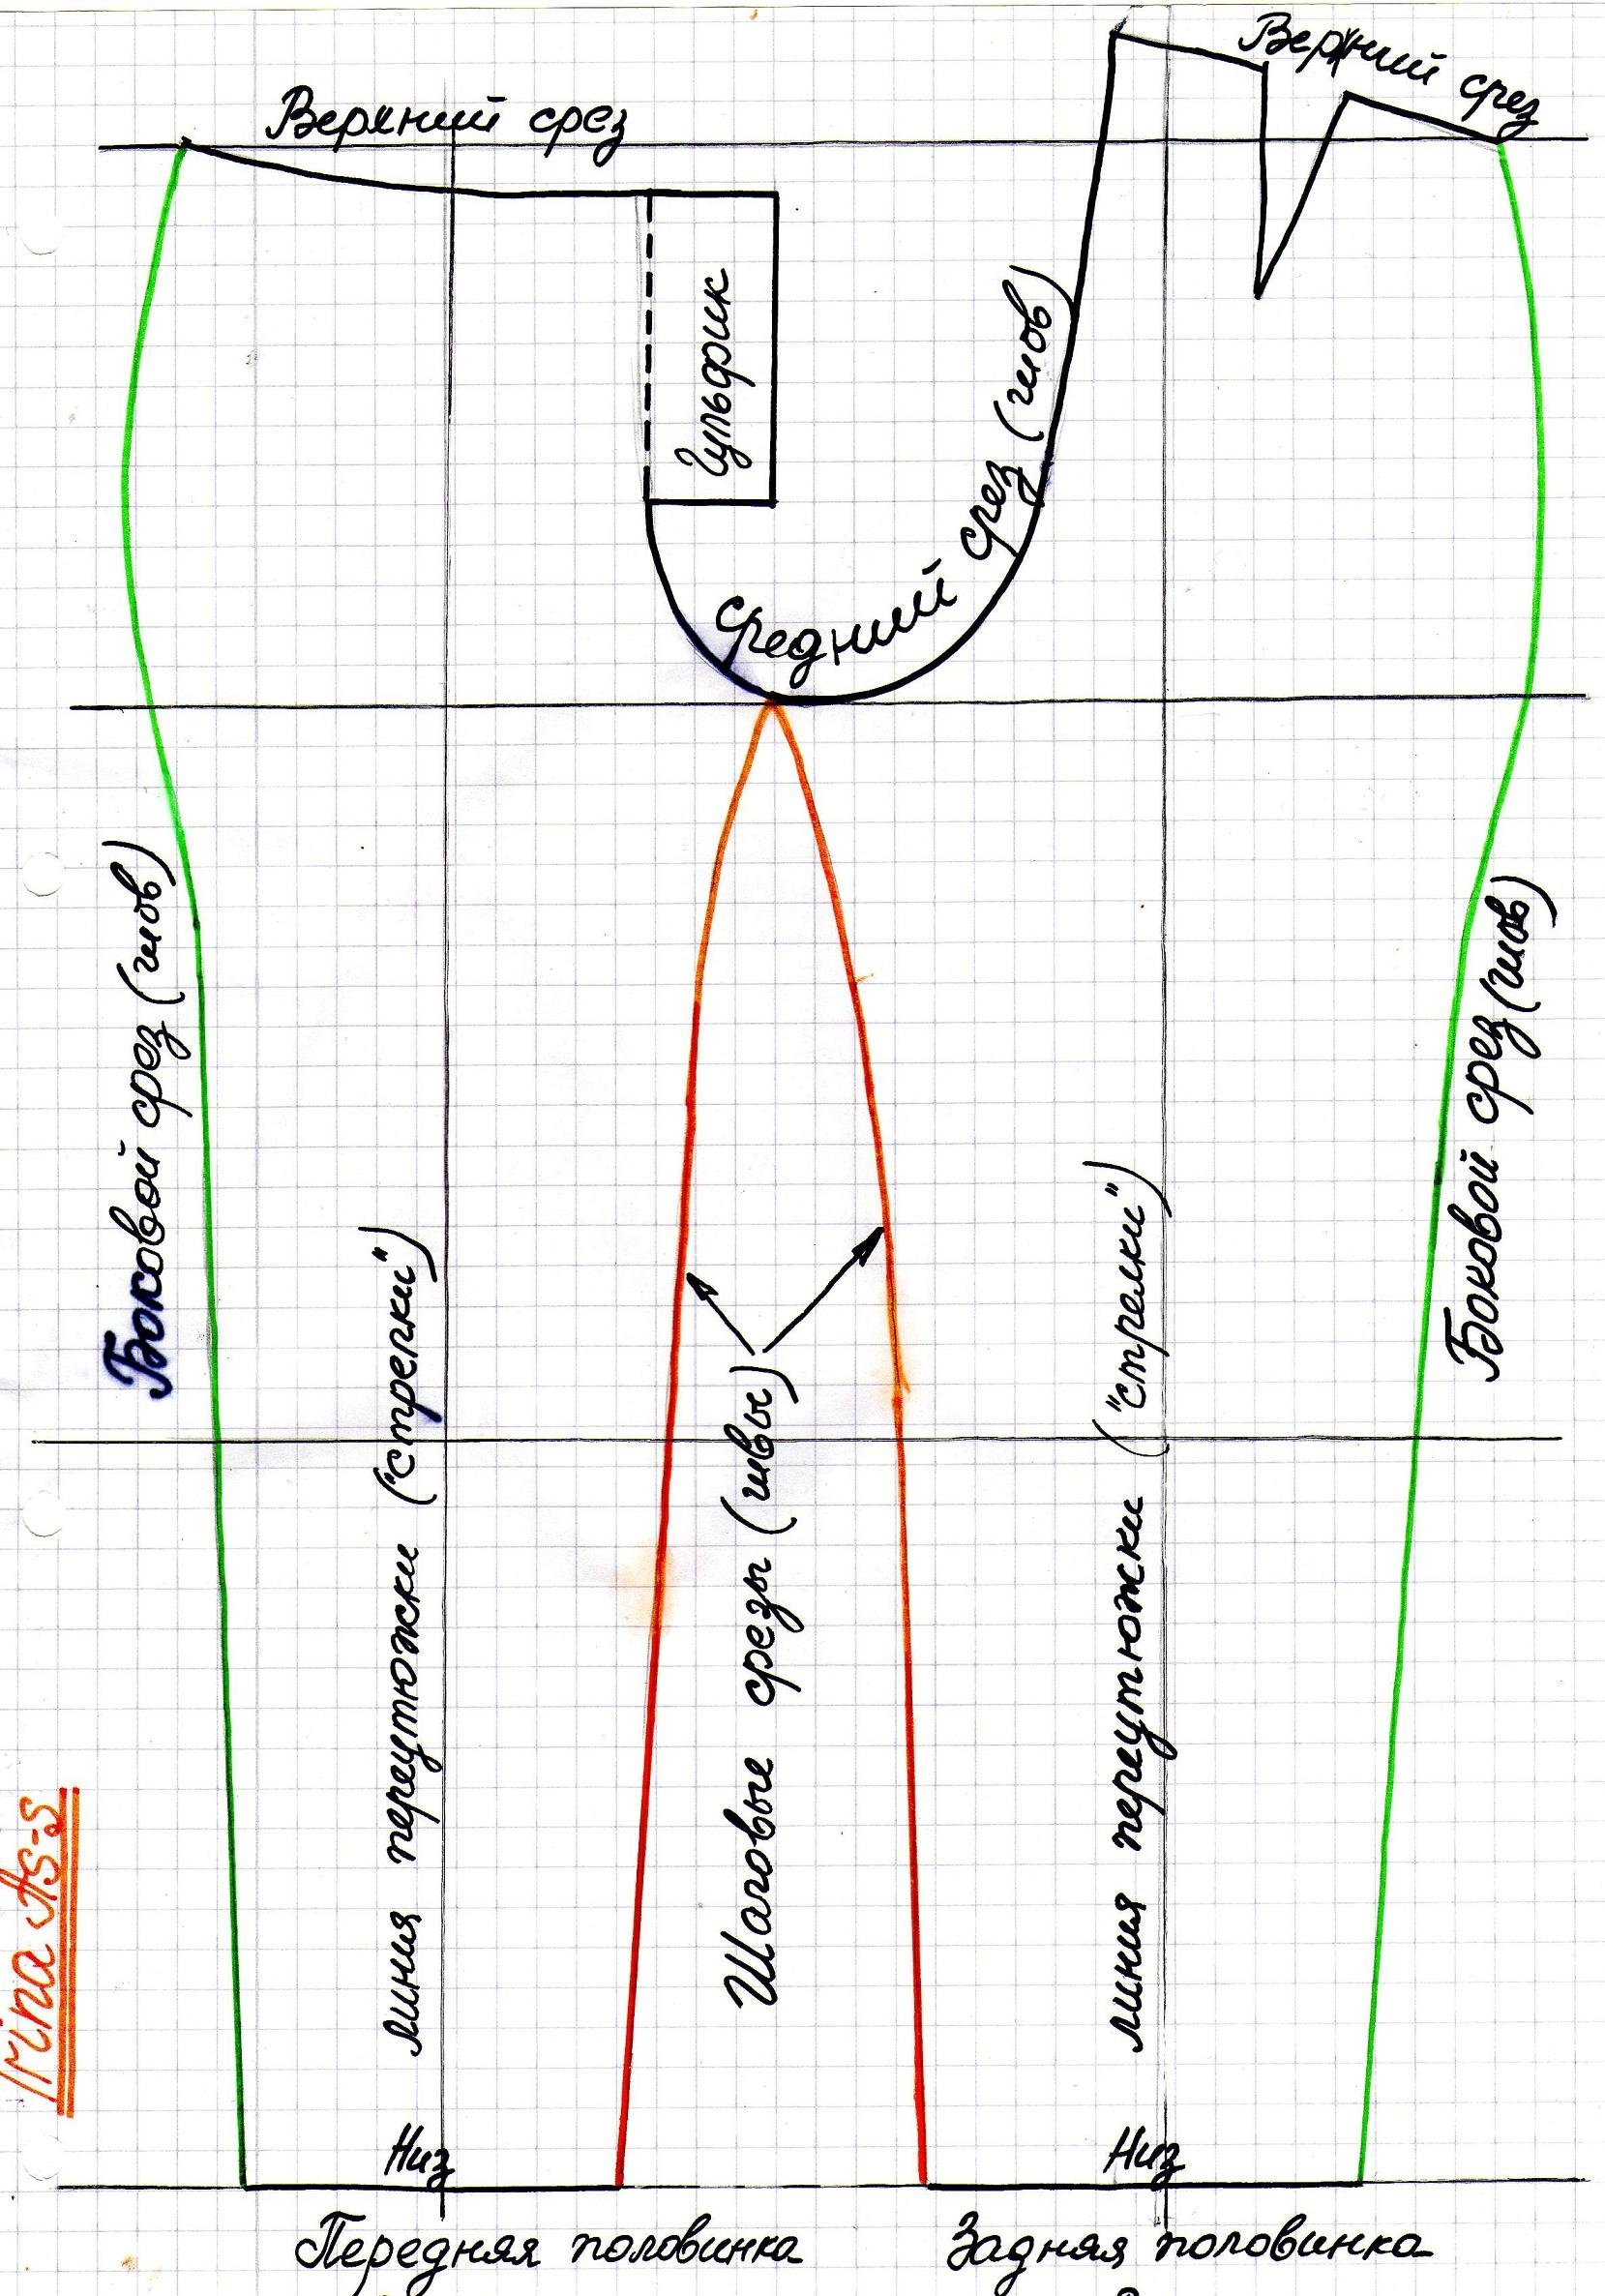 Верхний срез
Верхний срез
Гульфик
Средний срез (шов)
Боковой срез (шов)
Боковой срез (шов)
линия переутюжки ("стрелки")
Шаговые срезы (швы)
линия переутюжки ("стрелки")
Irina As-s
Низ
Низ
Передняя половинка
Задняя половинка